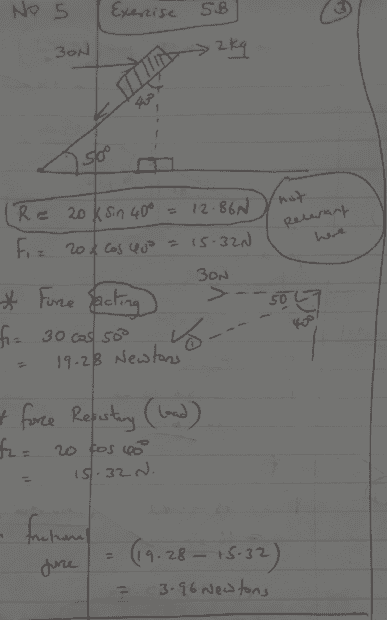 No 5 Exercise 5B 3
30N 2kg
40°
50°
R = 20 x Sin 40° = 12.86N
not
relevant
here
F1 = 20 x cos 40° = 15.32N
30N
* Force acting
50 40°
f1 = 30 cos 50°
①
= 19.28 Newtons
* force Resisting (load)
f2 = 20 cos 40°
= 15.32 N.
frictional
force = (19.28 - 15.32)
= 3.96 Newtons